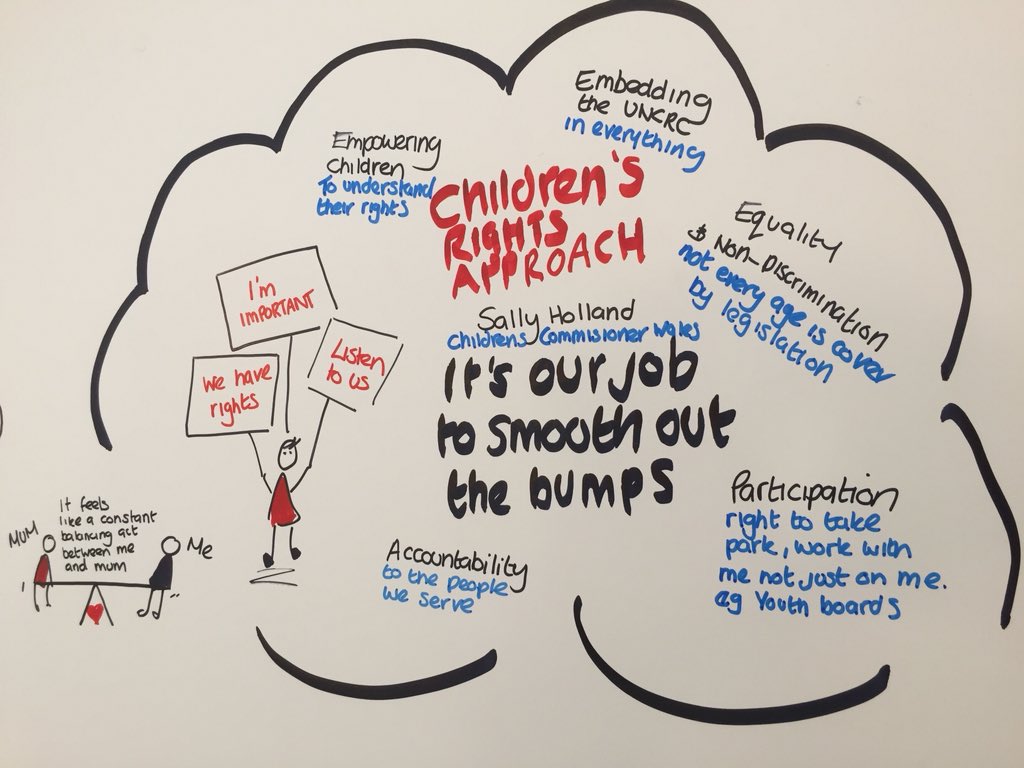 Embedding
the UNCRC
in everything
Empowering
Children
To understand
their rights
Children's
RIGHTS
APPROACH
Equality
& NON-DISCRIMINATION
not every age is cover
by legislation
I'm
IMPORTANT
Listen
to us
we have
rights
Sally Holland
Childrens Commisioner Wales
It's our job
to smooth out
the bumps
Participation
right to take
park, work with
me not just on me.
eg Youth boards
Accountability
to the people
we serve
It feels
like a constant
balancing act
between me
and mum
MUM
Me